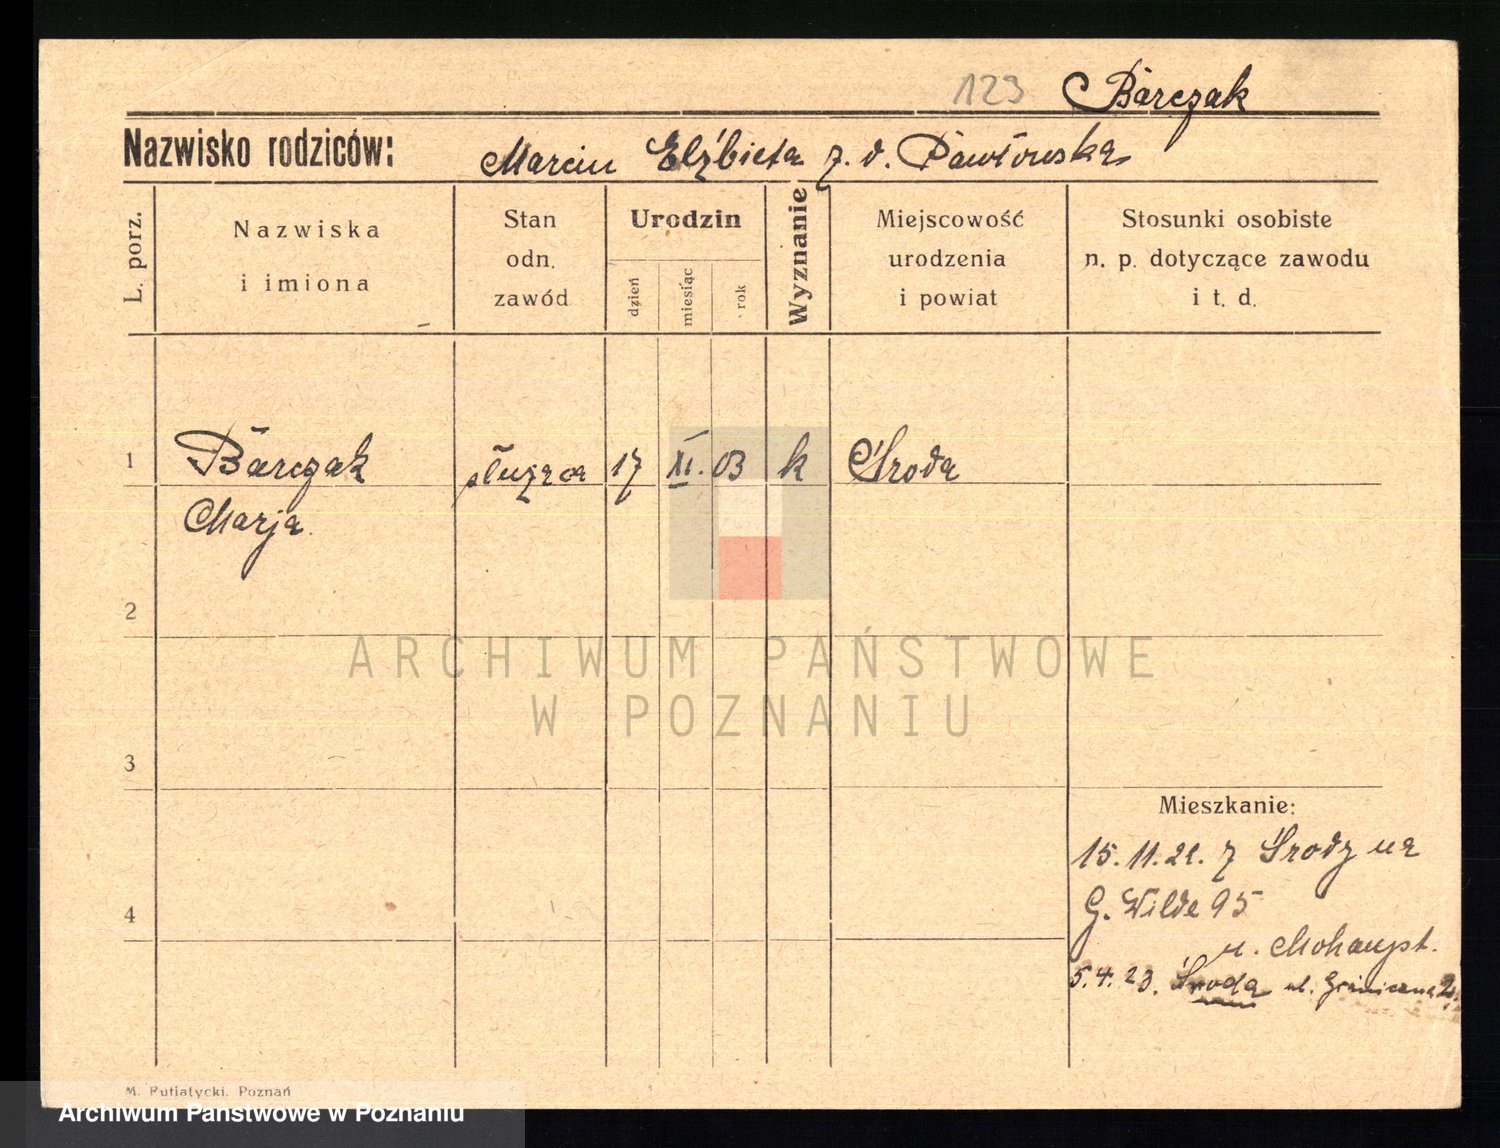 123 Barczak
Nazwisko rodziców: Marcin Elżbieta z. d. Pawłowska
L. porz.
Nazwiska
i imiona
Stan
odn.
zawód
Urodzin
dzień
miesiąc
rok
Wyznanie
Miejscowość
urodzenia
i powiat
Stosunki osobiste
n. p. dotyczące zawodu
i t. d.
1 Barczak służąca 17 XI. 03 k Środa
Marja.
2
ARCHIWUM PAŃSTWOWE
W POZNANIU
3
Mieszkanie:
15.11.21. z Środy na
4
G. Wilde 95
u. Mohaupt.
5.4.23. Środa ul. Graniczna 2.
M. Putiatycki, Poznań
Archiwum Państwowe w Poznaniu